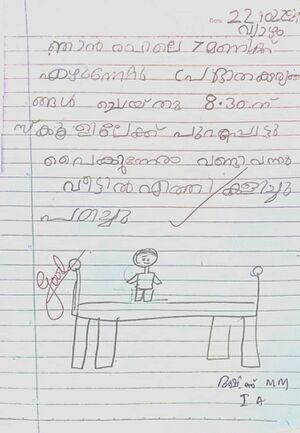 22
വ്യാഴം
ഞാൻ രാവിലെ 7 മണിക്ക്
എഴുന്നേറ്റു പ്രഭാതകൃത്യ
ങ്ങൾ ചെയ്തു 8.30 ന്
സ്കൂളിലേക്ക് പുറപ്പെട്ടു
വൈകുന്നേരം വണ്ടി വന്നു
വീട്ടിൽ എത്തി കളിച്ചു
പഠിച്ചു
Good
M M
I A